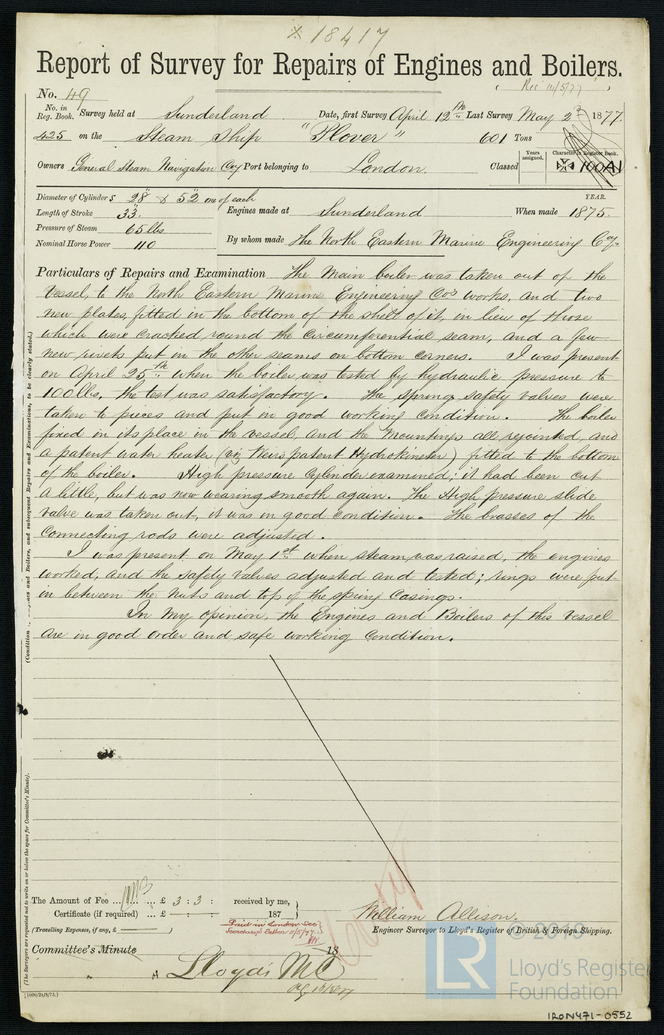 × 18417
Report of Survey for Repairs of Engines and Boilers.
No. 49
(Rec 11/5/77)
No. in Reg. Book. Survey held at Sunderland Date, first Survey April 12th Last Survey May 2d 1877
425 on the Steam Ship "Plover" 601 Tons
Years assigned. Character in Register Book.
Owners General Steam Navigation Coy Port belonging to London. Classed 100A1
Diameter of Cylinders 28 & 52 one of each
YEAR.
Length of Stroke 33. Engines made at Sunderland When made 1875.
Pressure of Steam 65 lbs
Nominal Horse Power 110 By whom made The North Eastern Marine Engineering Coy.
Particulars of Repairs and Examination The Main boiler was taken out of the
Vessel, to the North Eastern Marine Engineering Co's works, and two
new plates, fitted in the bottom of the shell of it, in lieu of those
which were cracked round the circumferential seam, and a few
new rivets put in the other seams on bottom corners. I was present
on April 25th when the boiler was tested by hydraulic pressure to
100 lbs, the test was satisfactory. The spring safety valves were
taken to pieces and put in good working condition. The boiler
fixed in its place in the vessel, and the Mountings all rejointed, and
a patent water heater (viz Weirs patent Hydrokineter) fitted to the bottom
of the boiler. High pressure Cylinder examined; it had been cut
a little, but was now wearing smooth again. The High pressure slide
valve was taken out, it was in good condition. The brasses of the
Connecting rods were adjusted.
I was present on May 1st when steam was raised, the engines
worked, and the safety valves adjusted and tested; rings were put
in between the nuts and top of the spring Casings.
In my opinion, the Engines and Boilers of this Vessel
are in good order and safe working Condition.
(Condition
and Boilers, and subsequent Repairs and Examinations, to be clearly stated.)
(The Surveyors are requested not to write on or below the space for Committee's Minute).
The Amount of Fee ... £ 3 : 3 : received by me,
Certificate (if required) ... £ : : 187
(Travelling Expenses, if any, £ )
Paid in London See
Secretary's Letter
William Allison.
Engineer Surveyor to Lloyd's Register of British & Foreign Shipping.
Committee's Minute 18
Lloyd's MC
LR
© 2019
Lloyd's Register
Foundation
IRON471-0552